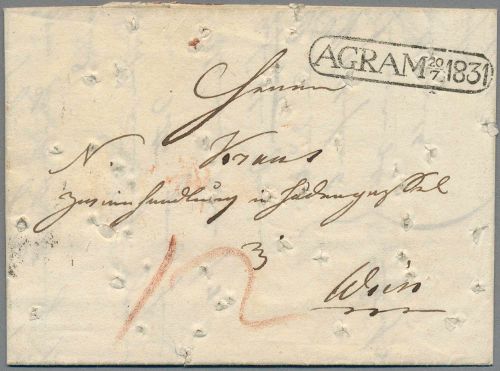 AGRAM 20/7 1831
Herrn
N. Kraus
in
3
Wien
12